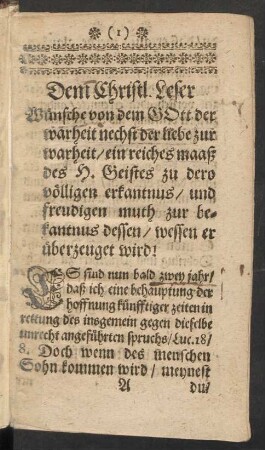 (1)
Dem Christl. Leser
Wünsche von dem GOtt der
warheit nechst der liebe zur
warheit/ ein reiches maaß
des H. Geistes zu dero
völligen erkantnus/ und
freudigen muth zur be-
kantnus dessen/ wessen er
überzeuget wird!
ES sind nun bald zwey jahr/
daß ich eine behauptung der
hoffnung künfftiger zeiten in
rettung des insgemein gegen dieselbe
unrecht angeführten spruchs/ Luc. 18/
8. Doch wenn des menschen
Sohn kommen wird/ meynest
A du/